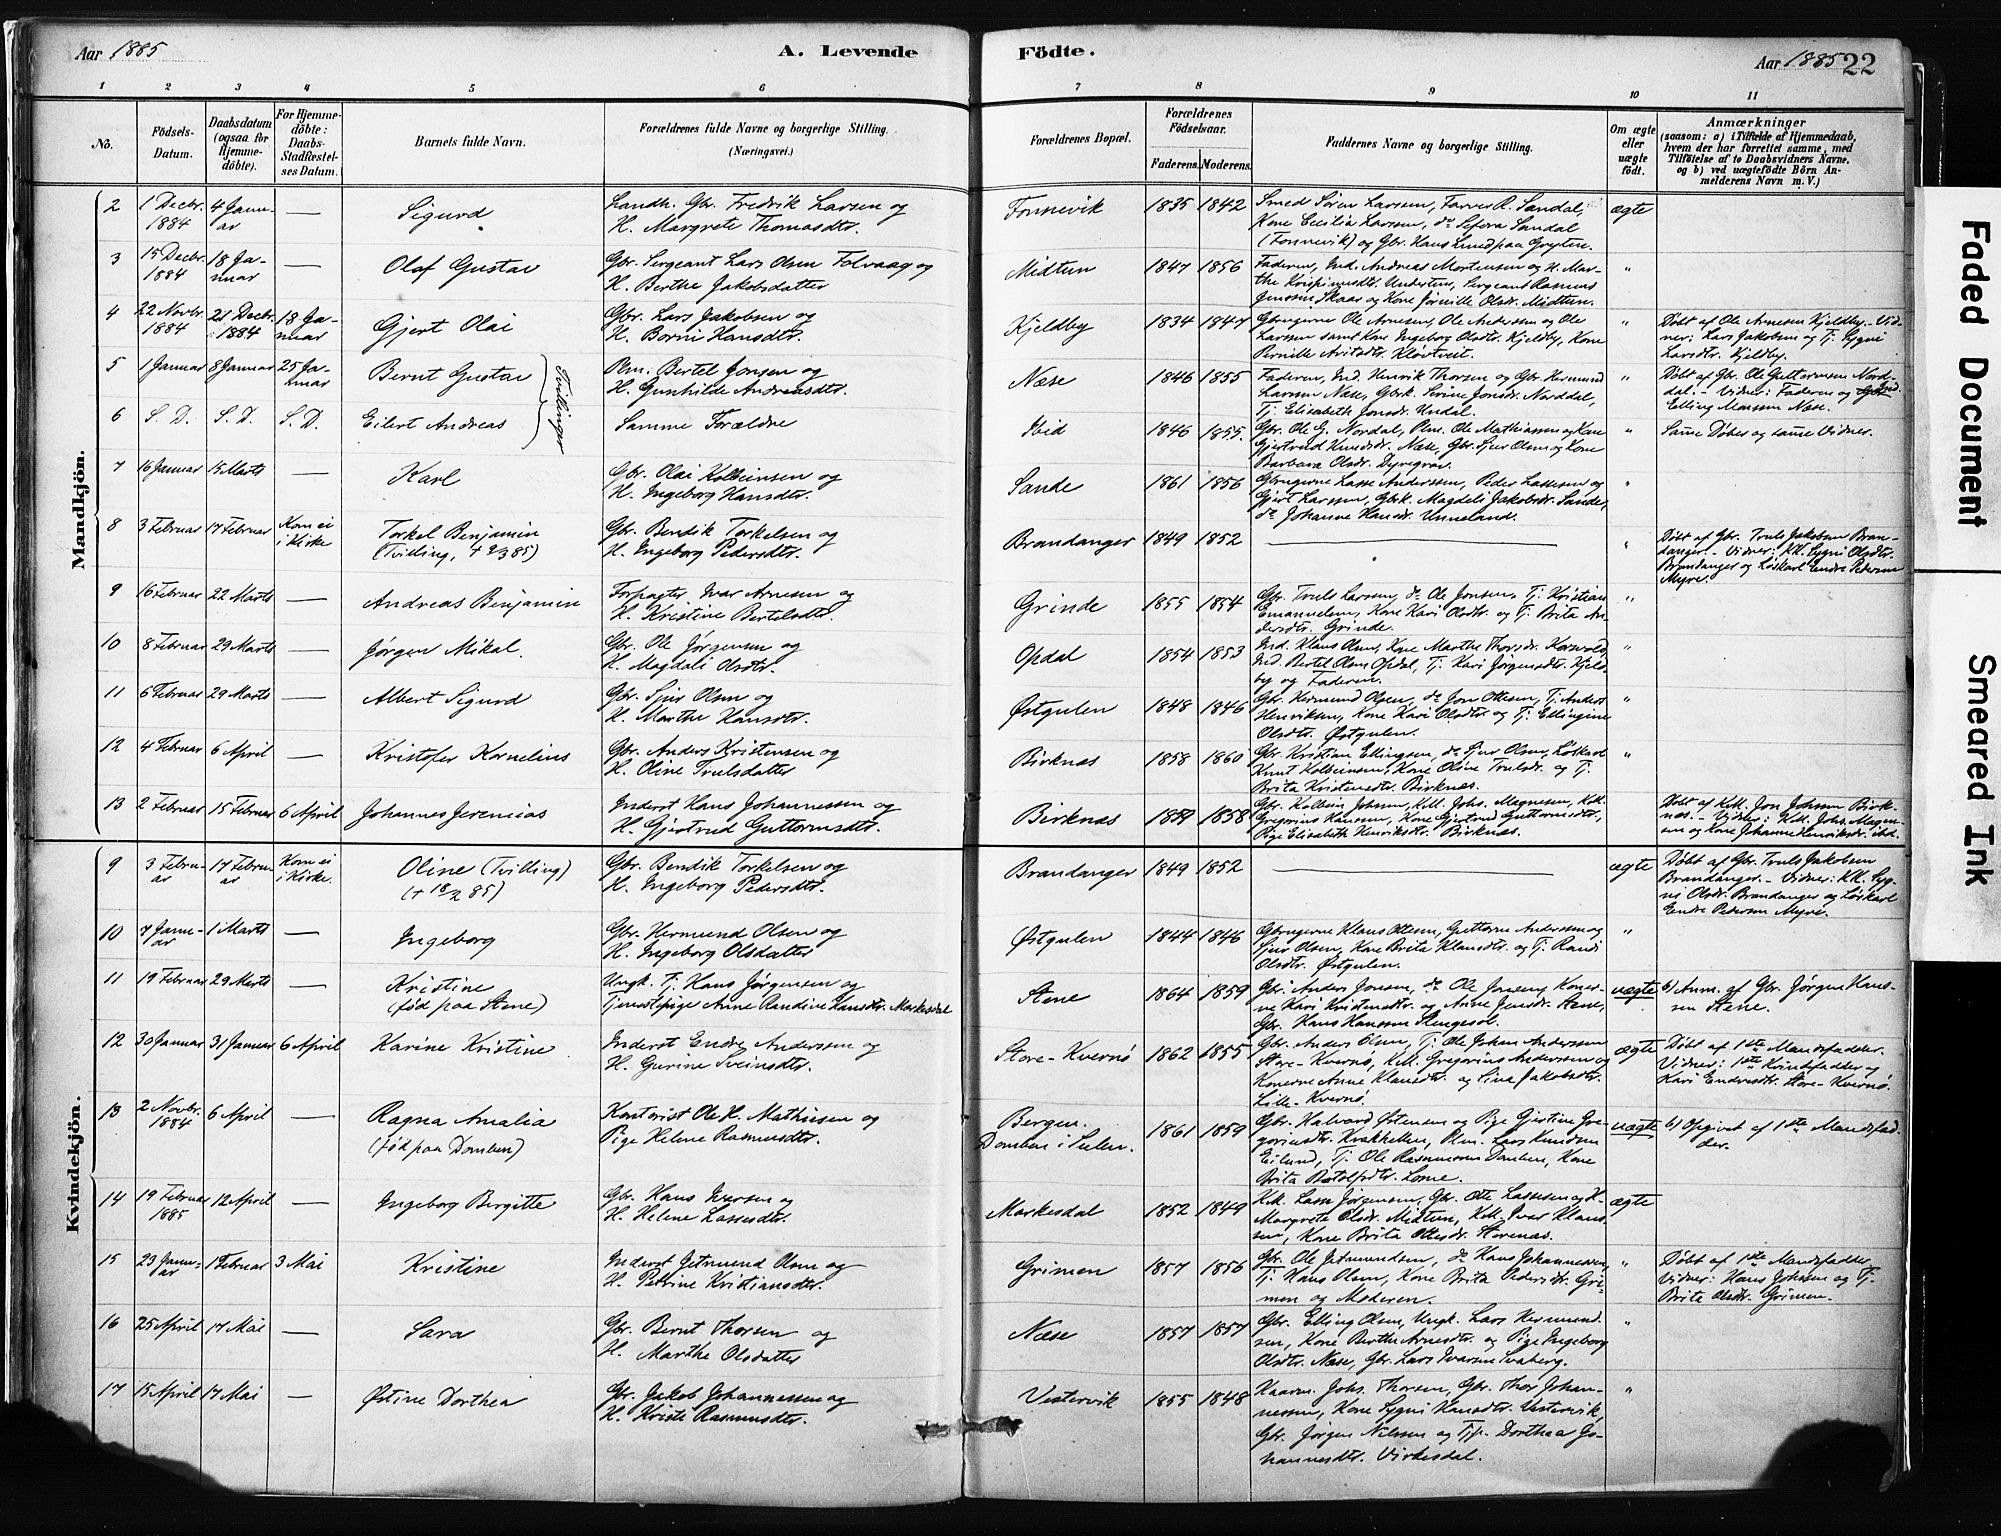 Aar 1885
A. Levende
Födte.
Aar 1885 22
1 2 3 4 5 6 7 8 9 10 11
No.
Födsels-Datum.
Daabsdatum (ogsaa for Hjemmedöbte).
For Hjemmedöbte: Daabs-Stadfæstelses Datum.
Barnets fulde Navn.
Forældrenes fulde Navne og borgerlige Stilling.
(Næringsvei.)
Forældrenes Bopæl.
Forældrenes Födselsaar.
Faderens. Moderens.
Faddernes Navne og borgerlige Stilling.
Om ægte eller uægte födt.
Anmærkninger
(saasom: a) i Tilfælde af Hjemmedaab, hvem der har forrettet samme, med Tilföielse af to Daabsvidners Navne, og b) ved uægtefödte Börn Anmelderens Navn m. V.)
Mandkjön.
2 1 Decbr. 1884 4 Januar — Sigurd
Landh. Gbr. Fredrik Larsen og
H. Margrete Thomasdtr.
Fonnevik 1835 1842
Smed Sören Larsen, Farver R. Sandal,
Kone Cecilia Larsen, do Sefora Sandal
(Fonnevik) og Gbr. Hans Lund paa Grysten.
ægte
3 15 Decbr. 1884 18 Januar — Olaf Gustav
Gbr. Sergeant Lars Olsen Folvaag og
H. Berthe Jakobsdatter
Midtun 1847 1856
Faderen, Ind. Andreas Mortensen og H. Marthe Krispinusdtr. Undertun, Sergeant Rasmus
Jenssen Skaar og Kone Jörnille Olsdr. Midtun.
"
4 22 Novbr. 1884 21 Decbr. 1884 18 Januar Gjert Olai
Gbr. Lars Jakobsen og
H. Borni Hansdtr.
Kjeldby 1834 1847
Gbrugerne Ole Arnesen, Ole Anderssen og Ole
Larssen samt Kone Ingeborg Olsdtr. Kjeldby, Kone
Pernille Klövtveit.
"
Döbt af Ole Arnesen Kjeldby.- Vidner: Lars Jakobsen og Tj. Sygni
Larsdtr. Kjeldby.
5 1 Januar 8 Januar 25 Januar Bernt Gustav
Tvillinger
Plm. Bertel Jonsen og
H. Gunhilde Andreasdtr.
Næse 1846 1855
Faderen, Ind. Henrik Thorsen og Gbr. Hermund
Larssen Næse, Gbrk. Serine Jonsdr. Norddal,
Tj. Elisabeth Jonsdr. Undal.
"
Döbt af Gbr. Ole Guttormsen Norddal.- Vidner: Faderen og Ind.
Elling Monssen Næse.
6 S. D. S. D. S. D. Eilert Andreas
Samme Forældre
Ibid 1846 1855.
Gbr. Ole G. Nordal, Plm. Ole Mathiassen og Kone
Gjertrud Knudsdr. Næse, Gbr. Sjur Olsen og Kone
Barbara Olsdr. Dyregrov.
"
Samme Döber og samme Vidner.
7 16 Januar 15 Marts — Karl
Gbr. Olai Kolbeinsen og
H. Ingeborg Hansdtr.
Sande 1861 1856
Gbrugerne Lasse Anderssen, Peder Lassesen og
Gjert Larssen, Gbrk. Magdeli Jakobsdr. Sande,
do Johanne Hansdr. Unneland.
"
8 3 Februar 17 Februar Kom ei i Kirke Torkel Benjamin
(Tvilling, + 2/3 85)
Gbr. Bendik Torkelsen og
H. Ingeborg Pedersdtr.
Brandanger 1849 1852 —
"
Döbt af Gbr. Truls Jakobsen Brandanger.- Vidner: KK. Sygni Olsdtr.
Brandanger og Löskarl Endre Pedersen
Myre.
9 16 Februar 22 Marts — Andreas Benjamin
Forpagter Ivar Arnesen og
H. Kristine Bertelsdtr.
Grinde 1855 1854
Gbr. Truls Larsen, do Ole Jonsen, Tj. Kristian
Emanuelsen, Kone Kari Olsdtr. og Tj. Brita Andersdtr. Grinde.
"
10 8 Februar 29 Marts — Jörgen Mikal.
Gbr. Ole Jörgensen og
H. Magdeli Olsdtr.
Opdal 1854 1853
Ind. Klaus Olsen, Kone Marthe Thorsdr.
Ind. Bertel Olsen Opdal, Tj. Kari Jörgensdtr. Kjeldby og Faderen.
"
11 6 Februar 29 Marts — Albert Sigurd
Gbr. Sjur Olsen og
H. Marthe Hansdtr.
Östgulen 1848 1846
Gbr. Hermund Olsen, do Jon Ottesen, Tj. Anders
Henriksen, Kone Kari Olsdtr. og Tj. Ellingine
Olsdtr. Östgulen.
"
12 4 Februar 6 April — Kristofer Kornelius
Gbr. Anders Kristensen og
H. Oline Trulsdatter
Birknæs 1858 1860
Gbr. Kristian Ellingsen, do Sjur Olsen, Löskarl
Knut Kolbeinsen, Kone Oline Trulsdr. og Tj.
Brita Kristensdtr. Birknæs.
"
13 2 Februar 15 Februar 6 April Johannes Jeremias
Inderst Hans Johannessen og
H. Gjertrud Guttormsdtr.
Birknæs 1859 1858
Gbr. Kolbein Johsen, K.M. Johs. Magnesen, K.M.
Gregorius Hanssen, Kone Gjertrud Guttormsdtr,
Pige Elisabeth Henriksdtr. Birknæs.
Döbt af K.M. Jon Johsen Birknæs.- Vidner: K.M. Johs. Magnesen og Kone Johanne Henriksdr. ibd.
Kvindekjön.
9 3 Februar 17 Februar Kom ei i Kirke. Oline (Tvilling)
(+ 18/2 85)
Gbr. Bendik Torkelsen og
H. Ingeborg Pedersdtr.
Brandanger 1849 1852 —
ægte
Döbt af Gbr. Truls Jakobsen
Brandanger.- Vidner: KK. Sygni Olsdr. Brandanger og Löskarl
Endre Pedersen Myre.
10 7 Januar 1 Marts — Ingeborg
Gbr. Hermund Olsen og
H. Ingeborg Olsdatter
Östgulen 1844 1846
Gbrugerne Klaus Ottesen, Guttorm Anderssen og
Sjur Olsen, Kone Brita Klausdtr. og Tj. Randi
Olsdtr. Östgulen.
"
11 19 Februar 29 Marts — Kristine
(född paa Stene)
Ungk. Tj. Hans Jörgensen og
Tjenestepige Anne Randine Hansdtr. Markesdal
Stene 1864 1859
Gbr. Anders Jonsen, do Ole Jonsen, Konerne Kari Kristensdtr. og Anne Jensdr. Stene,
Gbr. Hans Hanssen
uægte
b) Anm. af Gbr. Jörgen Hanssen Stene.
12 30 Januar 31 Januar 6 April Karine Kristine
Inderst Endre Anderssen og
H. Gurine Sveinsdtr.
Store-Kvernö 1862 1855
Gbr. Anders Olsen, Tj. Ole Johan Anderssen
Store-Kvernö, K.M. Gregorius Anderssen og
Konerne Anne Klausdtr. og Sina Jakobsdtr.
Lille-Kvernö.
ægte
Döbt af 1ste Mandsfadder.
Vidner: 1ste Kvindefadder og
Kari Endresdtr. Store-Kvernö.
13 2 Novbr. 1884 6 April — Ragna Amalia
(föd paa Domben)
Kontorist Ole H. Mathiesen og
Pige Helene Rasmusdtr.
Bergen.
Domben i Sulen. 1861 1859
Gbr. Halvard Östensen og Pige Gjertine Gregoriusdtr. Krakhellen, Plm. Lars Knudsen
Eilund, Tj. Ole Rasmussen Domben, Kone
Brita Botolfsdtr. Losne.
uægte
b) Opgivet af 1ste Mandsfadder.
14 19 Februar 1885 12 April — Ingeborg Birgitte
Gbr. Hans Iversen og
H. Helene Lassesdtr.
Markesdal 1852 1849
K.M. Lasse Jörgensen, Gbr. Otte Lassesen og H.
Margrete Olsdr. Midtun, K.M. Ivar Klaussen, Kone Brita Ottesdr.
ægte
15 23 Januar 1 Februar 3 Mai Kristine
Inderst Jetmund Olsen og
H. Petrine Kristiansdtr.
Grimen 1857 1856
Gbr. Ole Jetmundsen, do Hans Johannessen,
Tj. Hans Olsen, Kone Brita Pedersdtr. Grimen og Moderen.
"
Döbt af 1ste Mandsfadder,
Vidner: Hans Johssen og Tj.
Brita Olsdtr. Grimen.
16 25 April 17 Mai — Sara
Gbr. Bernt Thorsen og
H. Marthe Olsdatter
Næse 1857 1857
Gbr. Elling Olsen, Ungk. Lars Hermundsen, Kone Berthe Arnesdtr. og Pige Ingeborg
Olsdtr. Næse, Gbr. Lars Ivarsen Svaberg.
"
17 15 April 17 Mai — Östine Dorthea
Gbr. Jakob Johannessen og
H. Kriste Rasmusdtr.
Vestervik 1855 1848
Kaarm. Johs. Thorsen, Gbr. Thor Johannessen, Kone Sygni Hansdtr. Vestervik,
Gbr. Jörgen Nilssen og Tjp. Dorthea Johannesdtr. Virkesdal.
"
Faded Document
Smeared Ink